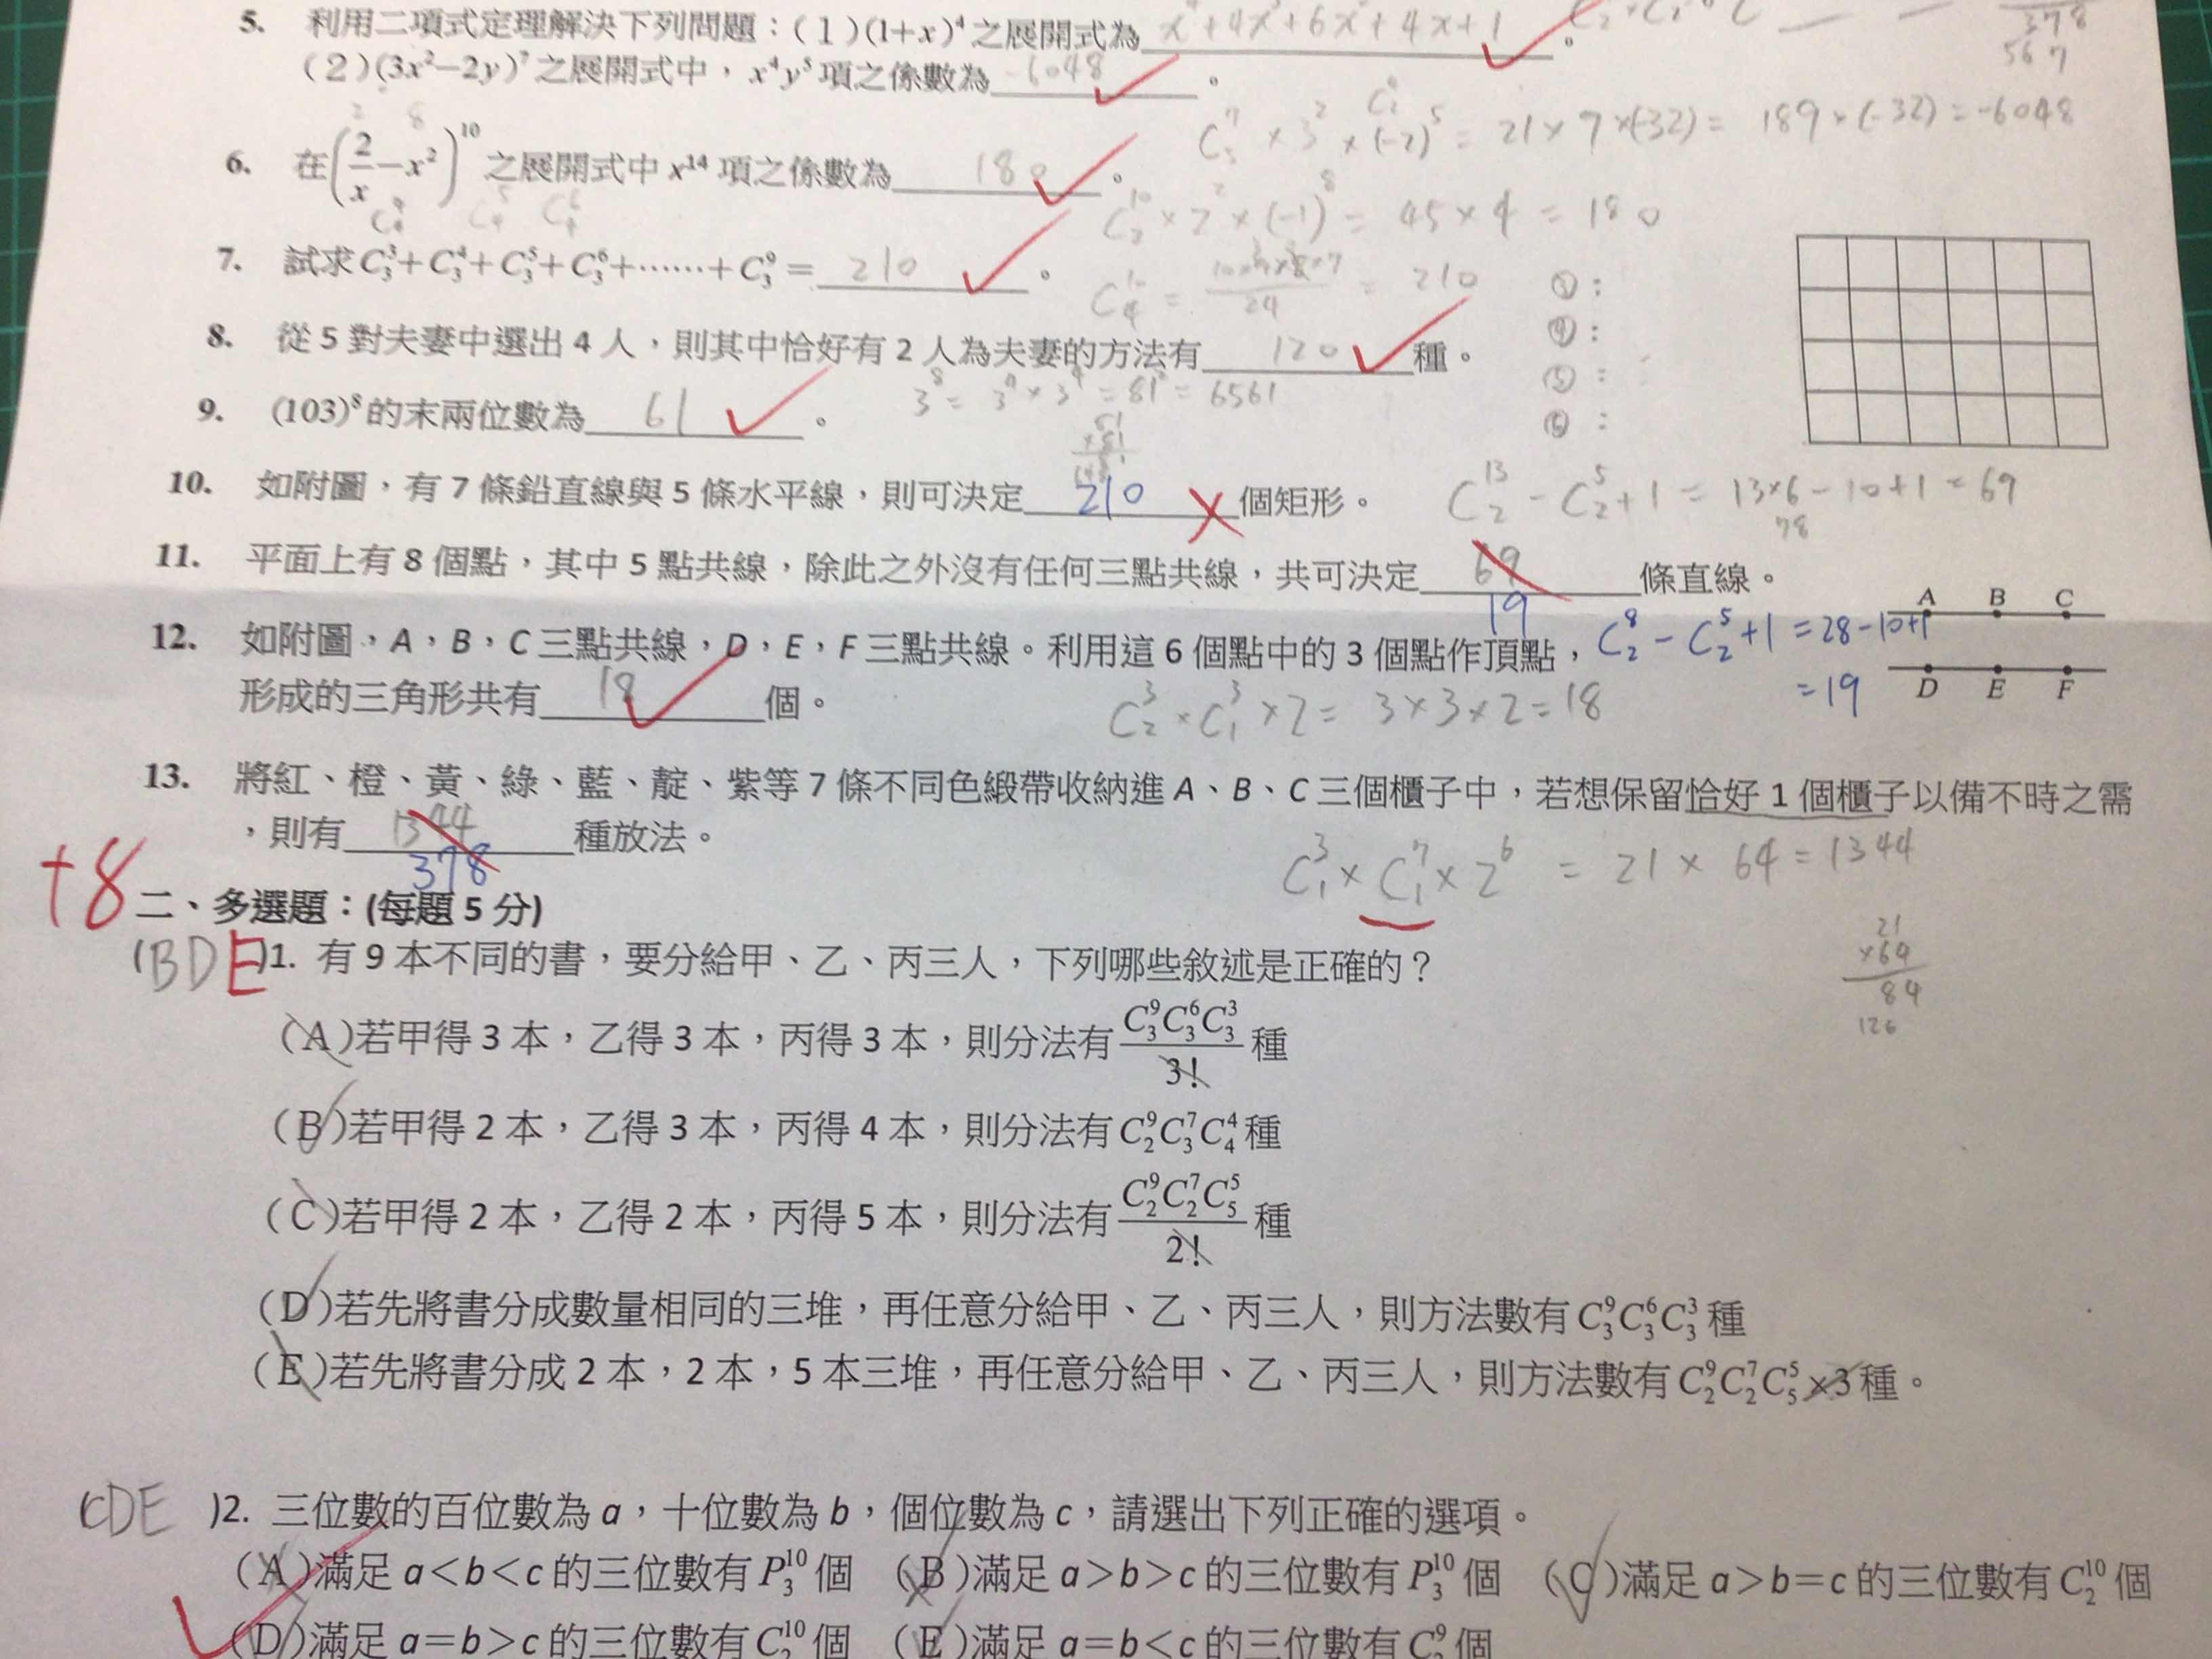 5. 利用二項式定理解決下列問題：(1)(1+x)⁴之展開式為 x⁴+4x³+6x²+4x+1 。
378
567
(2)(3x²−2y)⁷之展開式中，x⁴y⁵項之係數為 -6048 。
C⁷₅ × 3² × (-2)⁵ = 21 × 7 × (-32) = 189 × (-32) = -6048
2 8
6. 在(2/x−x²)¹⁰之展開式中 x¹⁴ 項之係數為 180 。
C¹⁰₈ × 2² × (-1)⁸ = 45 × 4 = 180
7. 試求 C³₃+C⁴₃+C⁵₃+C⁶₃+⋯⋯+C⁹₃= 210 。
C¹⁰₄ = 10×9×8×7/24 = 210
③：
④：
⑤：
⑥：
8. 從 5 對夫妻中選出 4 人，則其中恰好有 2 人為夫妻的方法有 120 種。
9. (103)⁸的末兩位數為 61 。
3⁸ = 3⁴ × 3⁴ = 81² = 6561
10. 如附圖，有 7 條鉛直線與 5 條水平線，則可決定 210 個矩形。
C¹³₂ - C⁵₂ + 1 = 13×6 - 10 + 1 = 69
78
11. 平面上有 8 個點，其中 5 點共線，除此之外沒有任何三點共線，共可決定 69 條直線。
19
C⁸₂ - C⁵₂ + 1 = 28-10+1
= 19
A B C
D E F
12. 如附圖，A，B，C 三點共線，D，E，F 三點共線。利用這 6 個點中的 3 個點作頂點，
形成的三角形共有 18 個。
C³₂ × C³₁ × 2 = 3×3×2 = 18
13. 將紅、橙、黃、綠、藍、靛、紫等 7 條不同色緞帶收納進 A、B、C 三個櫃子中，若想保留恰好 1 個櫃子以備不時之需
，則有 1344 種放法。
378
C³₁ × C⁷₁ × 2⁶ = 21 × 64 = 1344
21
×64
84
126
+8
二、多選題：(每題 5 分)
(BDE)1. 有 9 本不同的書，要分給甲、乙、丙三人，下列哪些敘述是正確的？
(A)若甲得 3 本，乙得 3 本，丙得 3 本，則分法有 C⁹₃C⁶₃C³₃/3! 種
(B)若甲得 2 本，乙得 3 本，丙得 4 本，則分法有 C⁹₂C⁷₃C⁴₄ 種
(C)若甲得 2 本，乙得 2 本，丙得 5 本，則分法有 C⁹₂C⁷₂C⁵₅/2! 種
(D)若先將書分成數量相同的三堆，再任意分給甲、乙、丙三人，則方法數有 C⁹₃C⁶₃C³₃ 種
(E)若先將書分成 2 本，2 本，5 本三堆，再任意分給甲、乙、丙三人，則方法數有 C⁹₂C⁷₂C⁵₅×3 種。
(CDE )2. 三位數的百位數為 a，十位數為 b，個位數為 c，請選出下列正確的選項。
(A)滿足 a<b<c 的三位數有 P¹⁰₃ 個 (B)滿足 a>b>c 的三位數有 P¹⁰₃ 個 (C)滿足 a>b=c 的三位數有 C¹⁰₂ 個
(D)滿足 a=b>c 的三位數有 C¹⁰₂ 個 (E)滿足 a=b<c 的三位數有 C⁹₂ 個